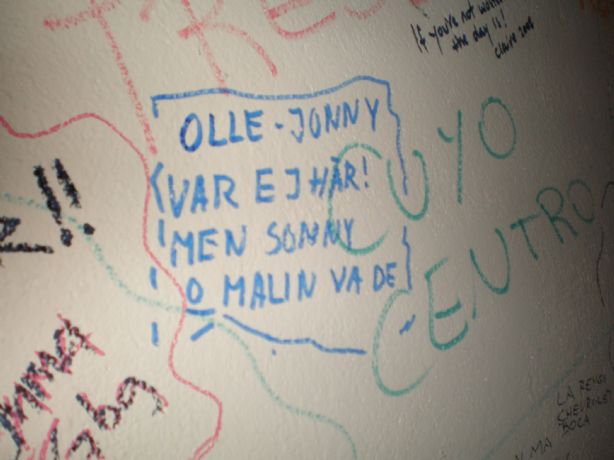 TRES
If you're not
the day is!
Claire 2006
OLLE-JONNY
VAR EJ HÄR!
MEN SONNY
O MALIN VA DE
CUYO
CENTRO
!!
LA RENGA
CHEVROLET
BOCA